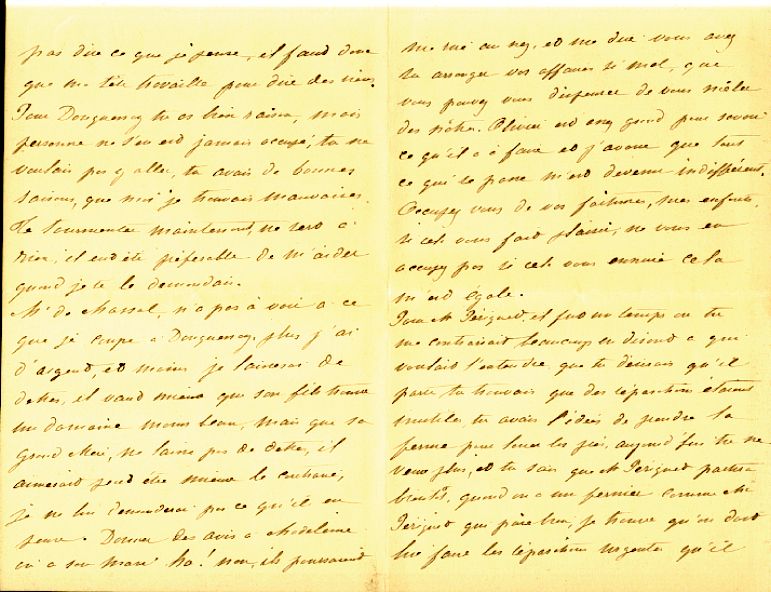 pas dire ce que je pense, il faud donc
que ma tête travaille pour dire des riens.
Pour Douguensay tu as bien raison, mais
personne ne s'en est jamais occupé, tu ne
voulais pas y aller, tu avais de bonnes
raisons, que moi je trouvais mauvaises.
Te tourmenter maintenant, ne sert à
rien, il eut été préférable de m'aider
quand je te le demandais.
Mr de Massol, n'a pas à voir a ce
que je coupe a Douguensay, plus j'ai
d'argent, et moins je laisserai de
dettes, il vaud mieux que son fils trouve
un domaine moins beau, mais que sa
grand Mère, ne laisse pas de dettes, il
aimerait peut être mieux le contraire,
je ne lui demanderai pas ce qu'il en
pense. Donner des avis a Madeleine
ou a son mari ha! non, ils pourraient
me rire au nez, et me dire vous avez
su arranger vos affaires si mal, que
vous pouvez vous dispenser de vous mêler
des nôtres. Olivier est assez grand pour savoir
ce qu'il a à faire et j'avoue que tout
ce qui se passe m'est devenu indifférent.
Occupez vous de vos fortunes, mes enfants,
si cela vous fait plaisir, ne vous en
occupez pas si cela vous ennuie cela
m'est égale.
Pour Mr Périguet, il fut un temps ou tu
me contrariait beaucoup en disant a qui
voulait l'entendre que tu désirais qu'il
parte tu trouvais que des réparations etaient
inutiles, tu avais l'idée de prendre la
ferme pour louer les prés, aujourd'hui tu ne
veux plus, et tu sais que Mr Périguet partira
bientôt, quand on a un fermier comme Mr
Périguet qui paie bien, je trouve qu'on doit
lui faire les réparations urgentes qu'il